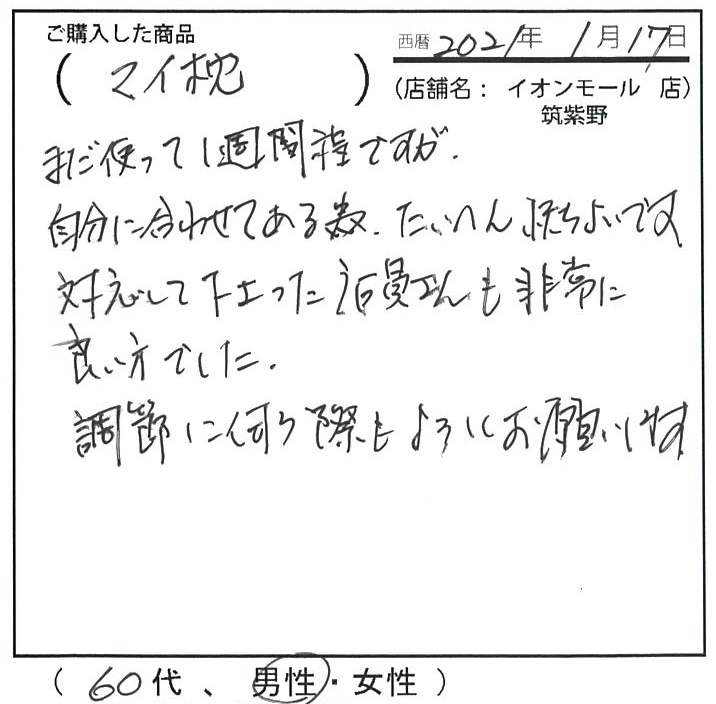 ご購入した商品
西暦 2021年 1月17日
( マイ枕 )
(店舗名： イオンモール 店)
筑紫野
まだ使って1週間程ですが.
自分に合わせてある数. たいへん 持ちよいです
対応して下さった店員さんも非常に
良い方でした.
調節に伺う際もよろしくお願いします
( 60代 、 男性・女性 )